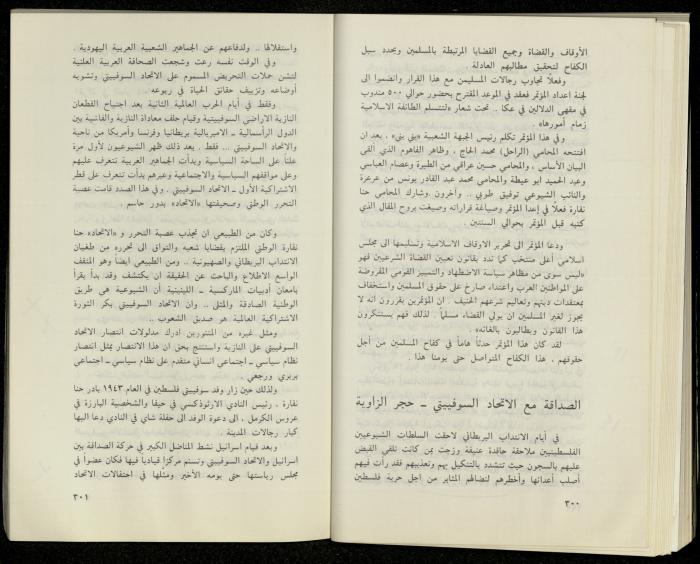 الأوقاف والقضاة وجميع القضايا المرتبطة بالمسلمين ويحدد سبل
الكفاح لتحقيق مطالبهم العادلة .
وفعلاً تجاوب رجالات المسلمين مع هذا القرار وانضموا الى
لجنة اعداد المؤتمر فعقد في الموعد المقترح بحضور حوالي ٥٠٠ مندوب
في مقهى الدلالين في عكا .. تحت شعار «لتتسلم الطائفة الاسلامية
زمام أمورها» .
وفي هذا المؤتمر تكلم رئيس الجبهة الشعبية «يني يني» ، بعد ان
افتتحه المحامي (الراحل) محمد الحاج ، وظاهر الفاهوم الذي ألقى
البيان الأساس ، والمحامي حسين عراقي من الطيرة وعصام العباسي
وعبد الحميد ابو عيطة والمحامي محمد عبد القادر يونس من عرعرة
والنائب الشيوعي توفيق طوبي .. وآخرون .وشارك المحامي حنا
نقارة فعلاً في إعدا المؤتمر وصياغة قراراته وصيغت بروح المقال الذي
كتبه قبل المؤتمر بحوالي السنتين .
ودعا المؤتمر الى تحرير الاوقاف الاسلامية وتسليمها الى مجلس
اسلامي أعلى منتخب كما ندد بقانون تعيين القضاة الشرعيين فهو
«ليس سوى من مظاهر سياسة الاضطهاد والتمييز القومي المفروضة
على المواطنين العرب واعتداء صارخ على حقوق المسلمين واستخفاف
بمعتقدات دينهم وتعاليم شرعهم الحنيف . ان المؤتمرين يقررون انه لا
يجوز لغير المسلمين ان يولي القضاء مسلماً . لذلك فهم يستنكرون
هذا القانون ويطالبون بالغائه» .
لقد كان هذا المؤتمر حدثاً هاماً في كفاح المسلمين من أجل
حقوقهم ، هذا الكفاح المتواصل حتى يومنا هذا .
الصداقة مع الاتحاد السوفييتي ــ حجر الزاوية
في أيام الانتداب البريطاني لاحقت السلطات الشيوعيين
الفلسطينيين ملاحقة حاقدة عنيفة وزجت بمن كانت تلقي القبض
عليهم بالسجون حيث تتشدد بالتنكيل بهم وتعذيبهم فقد رأت فيهم
أصلب أعدائها وأخطرهم لنضالهم المثابر من أجل حرية فلسطين
٣٠٠
واستقلالها .. ولدفاعهم عن الجماهير الشعبية العربية اليهودية .
وفي الوقت نفسه رعت وشجعت الصحافة العربية العلنية
لتشن حملات التحريض المسموم على الاتحاد السوفييتي وتشويه
أوضاعه وتزييف حقائق الحياة في ربوعه .
وفقط في أيام الحرب العالمية الثانية بعد اجتياح القطعان
النازية الاراضي السوفييتية وقيام حلف معاداة النازية والفاشية بين
الدول الرأسمالية ــ الامبريالية بريطانيا وفرنسا وأمريكا من ناحية
والاتحاد السوفييتي ... فقط ، بعد ذلك ظهر الشيوعيون لأول مرة
علناً على الساحة السياسية وبدأت الجماهير العربية تتعرف عليهم
وعلى مواقفهم السياسية والاجتماعية وعبرهم بدأت تتعرف على قطر
الاشتراكية الأول ــ الاتحاد السوفييتي . وفي هذا الصدد قامت عصبة
التحرر الوطني وصحيفتها «الاتحاد» بدور حاسم .
وكان من الطبيعي ان تجذب عصبة التحرر و «الاتحاد» حنا
نقارة الوطني الملتزم بقضايا شعبه والتواق الى تحرره من طغيان
الانتداب البريطاني والصهيونية .. ومن الطبيعي ايضاً وهو المثقف
الواسع الاطلاع والباحث عن الحقيقة ان يكتشف وقد بدأ يقرأ
بامعان أدبيات الماركسية ــ اللينينية أن الشيوعية هي طريق
الوطنية الصادقة والمثلى .. وان الاتحاد السوفييتي بكر الثورة
الاشتراكية العالمية هو صديق الشعوب ..
ومثل غيره من المتنورين ادرك مدلولات انتصار الاتحاد
السوفييتي على النازية واستنتج بحق ان هذا الانتصار يمثل انتصار
نظام سياسي ــ اجتماعي انساني متقدم على نظام سياسي ــ اجتماعي
بربري ورجعي .
ولذلك حين زار وفد سوفييتي فلسطين في العام ١٩٤٣ بادر حنا
نقارة ، رئيس النادي الارثوذكسي في حيفا والشخصية البارزة في
عروس الكرمل ، الى دعوة الوفد الى حفلة شاي في النادي دعا اليها
كبار رجالات المدينة .
وبعد قيام اسرائيل نشط المناضل الكبير في حركة الصداقة بين
اسرائيل والاتحاد السوفييتي وتسنم مركزاً قيادياً فيها فكان عضواً في
مجلس رياستها حتى يومه الأخير ومثلها في احتفالات الاتحاد
٣٠١